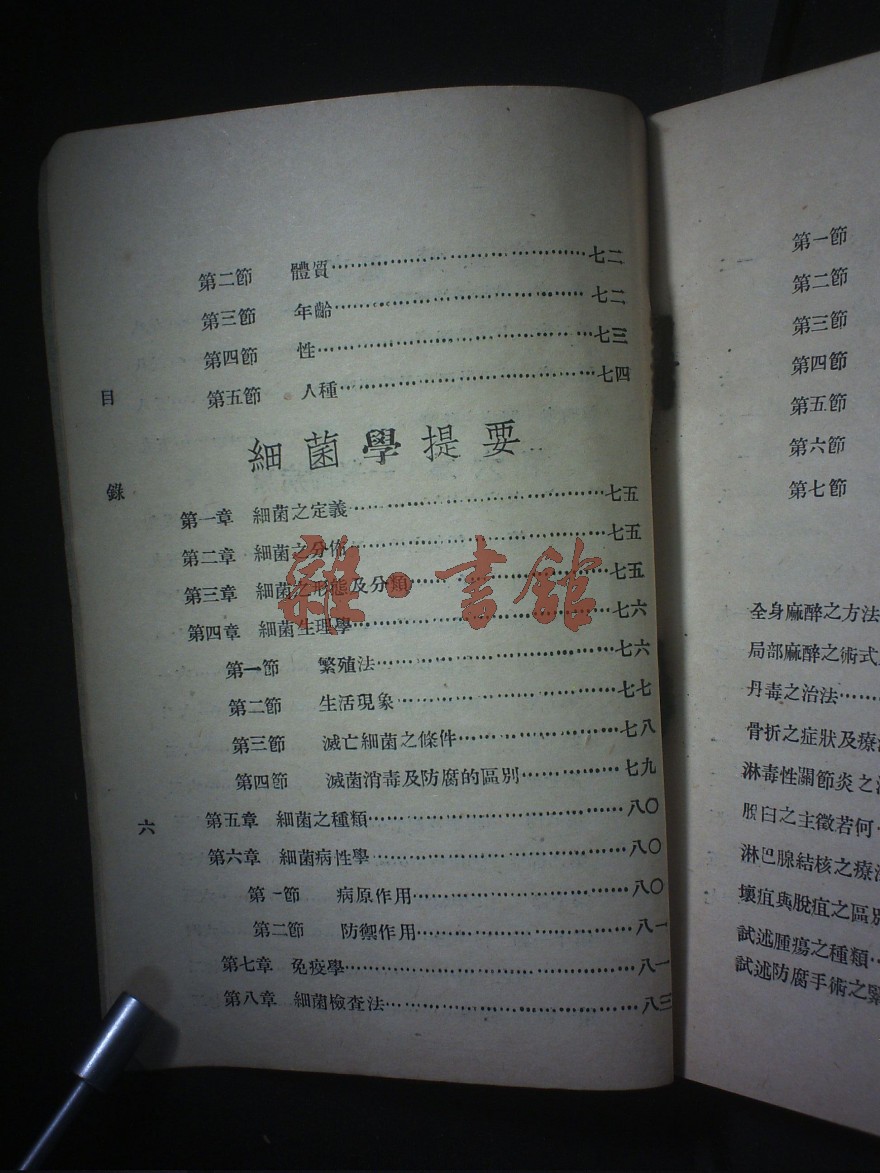 第二節 體質……七二
第三節 年齡……七二
第四節 性……七三
第五節 人種……七四
細菌學提要
第一章 細菌之定義……七五
第二章 細菌之分佈……七五
第三章 細菌之形態及分類……七五
第四章 細菌生理學……七六
第一節 繁殖法……七六
第二節 生活現象……七七
第三節 滅亡細菌之條件……七八
第四節 滅菌消毒及防腐的區別……七九
第五章 細菌之種類……八〇
第六章 細菌病性學……八〇
第一節 病原作用……八〇
第二節 防禦作用……八一
第七章 免疫學……八一
第八章 細菌檢查法……八三
目錄
六
雜·書館
第一節
第二節
第三節
第四節
第五節
第六節
第七節
全身麻醉之方法
局部麻醉之術式
丹毒之治法……
骨折之症狀及療
淋毒性關節炎之
脫臼之主徵若何
淋巴腺結核之療
壞疽與脫疽之區別
試述腫瘍之種類
試述防腐手術之